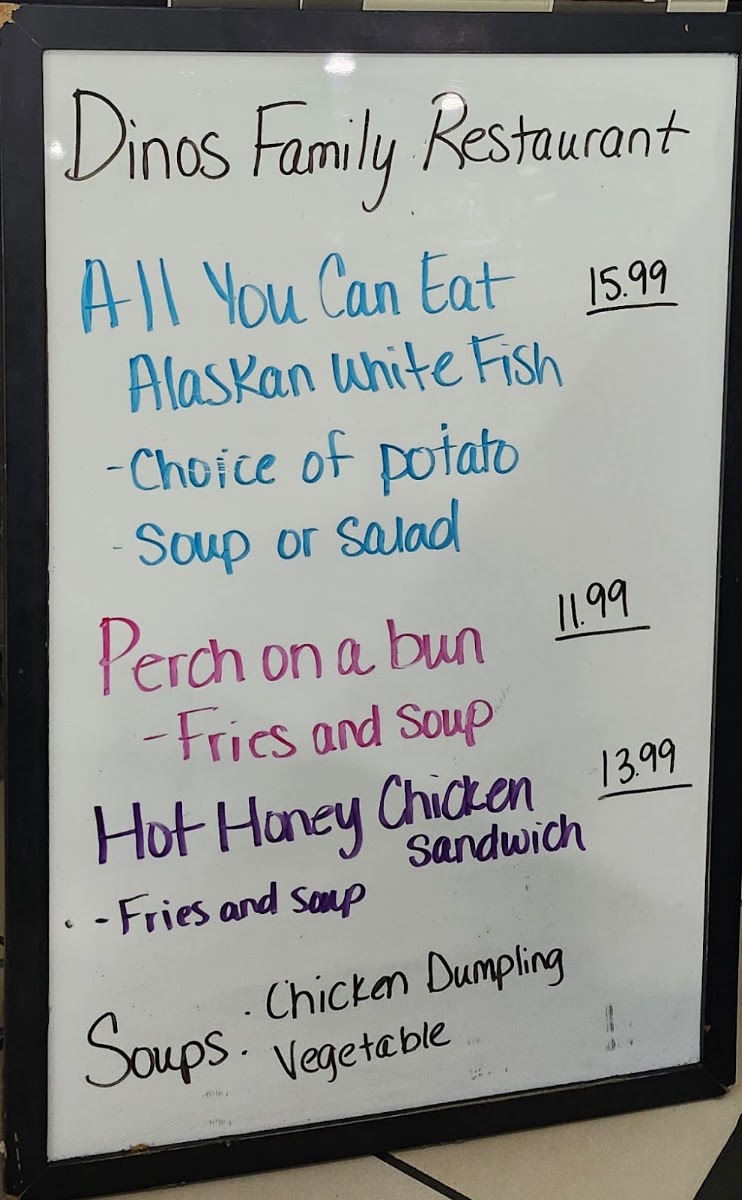 Dinos Family Restaurant
All You Can Eat 15.99
Alaskan White Fish
- Choice of potato
- Soup or salad
Perch on a bun 11.99
- Fries and soup
Hot Honey Chicken 13.99
Sandwich
- Fries and soup
Soups · Chicken Dumpling
· Vegetable